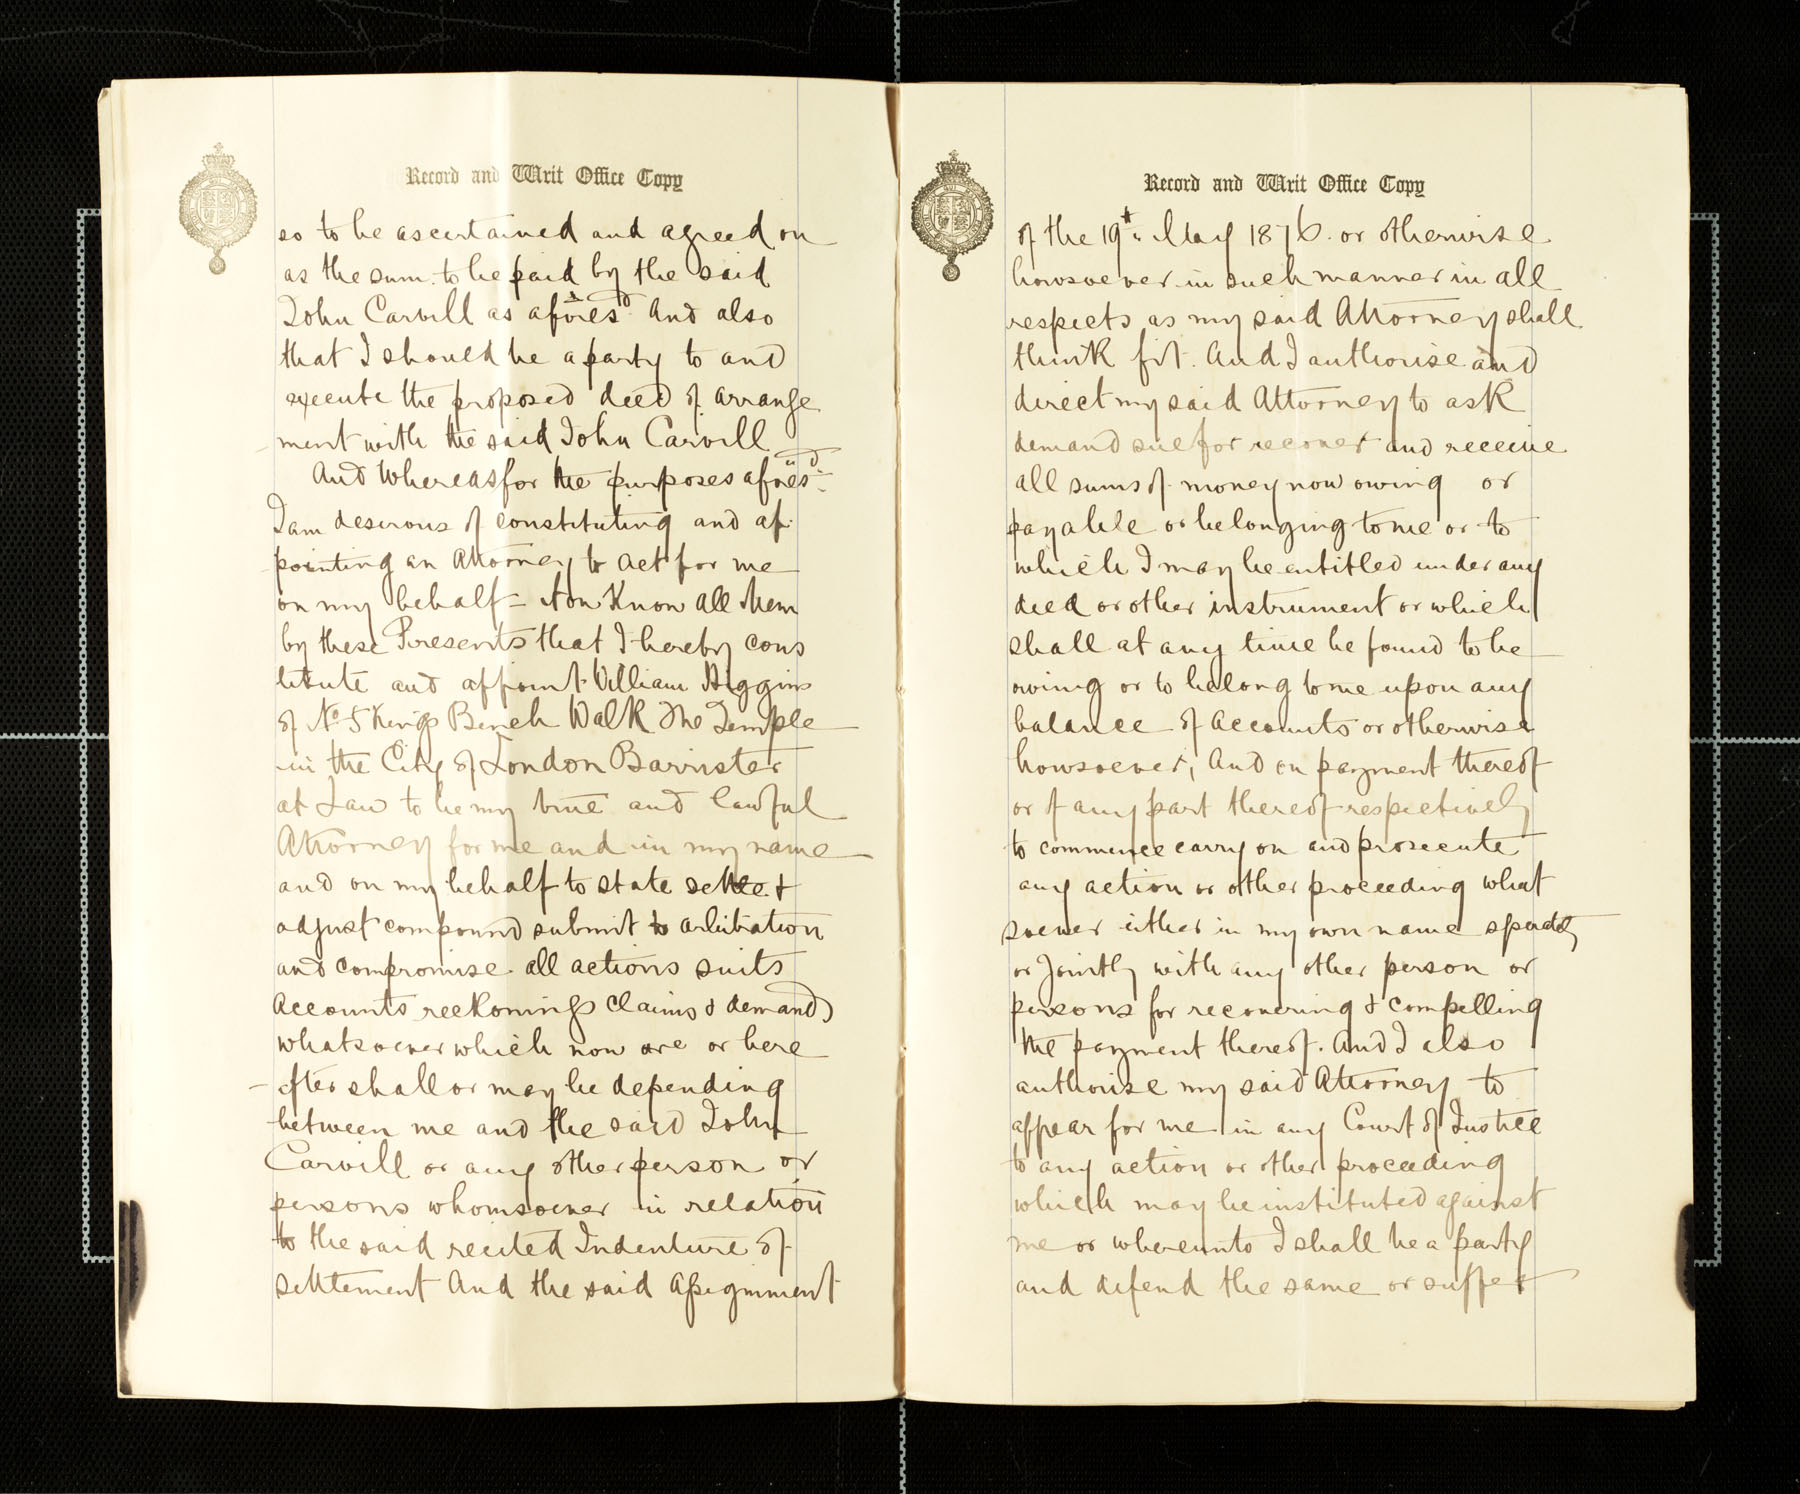 Record and Writ Office Copy
so to be ascertained and agreed on
as the sum to be paid by the said
John Carvill as afores.d And also
that I should be a party to and
execute the proposed deed of arrange
ment with the said John Carvill
And Whereas for the purposes afores.d
I am desirous of constituting and ap
pointing an Attorney to act for me
on my behalf = Now Know All Men
by these Presents that I hereby cons
titute and appoint William Higgins
of No 5 Kings Bench Walk The Temple
in the City of London Barrister
at Law to be my true and lawful
Attorney for me and in my name
and on my behalf to state settle &
adjust compound submit to arbitration
and compromise all actions suits
Accounts reckonings claims & demands
whatsoever which now are or here
after shall or may be depending
between me and the said John
Carvill or any other person or
persons whomsoever in relation
to the said recited Indenture of
settlement And the said Assignment
Record and Writ Office Copy
of the 19th May 1876 or otherwise
howsoever in such manner in all
respects as my said Attorney shall
think fit. And I authorise and
direct my said Attorney to ask
demand sue for recover and receive
all sums of money now owing or
payable or belonging to me or to
which I may be entitled under any
deed or other instrument or which
shall at any time be found to be
owing or to belong to me upon any
balance of accounts or otherwise
howsoever, And on payment thereof
or of any part thereof respectively
to commence carry on and prosecute
any action or other proceeding what
soever either in my own name
or jointly with any other person or
persons for recovering & compelling
the payment thereof. And I also
authorise my said Attorney to
appear for me in any Court of Justice
to any action or other proceeding
which may be instituted against
me or whereunto I shall be a party
and defend the same or suffer